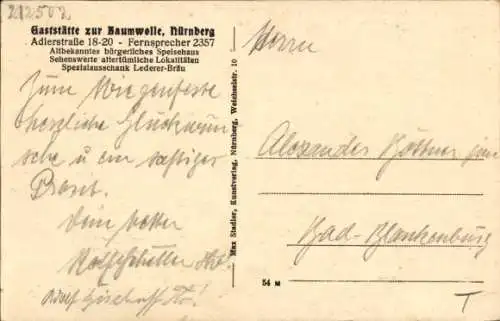 212502
Gaststätte zur Baumwolle, Nürnberg
Adlerstraße 18-20 - Fernsprecher 2357
Altbekanntes bürgerliches Speisehaus
Sehenswerte altertümliche Lokalitäten
Spezialausschank Lederer-Bräu
Zum Wiegenfeste
herzliche Glückwün
sche u ein saftiges
Prosit.
Dein
Max Stadler, Kunstverlag, Nürnberg, Weichselstr. 10
Herrn
Alexander
Bad-Blankenburg
54 M
T